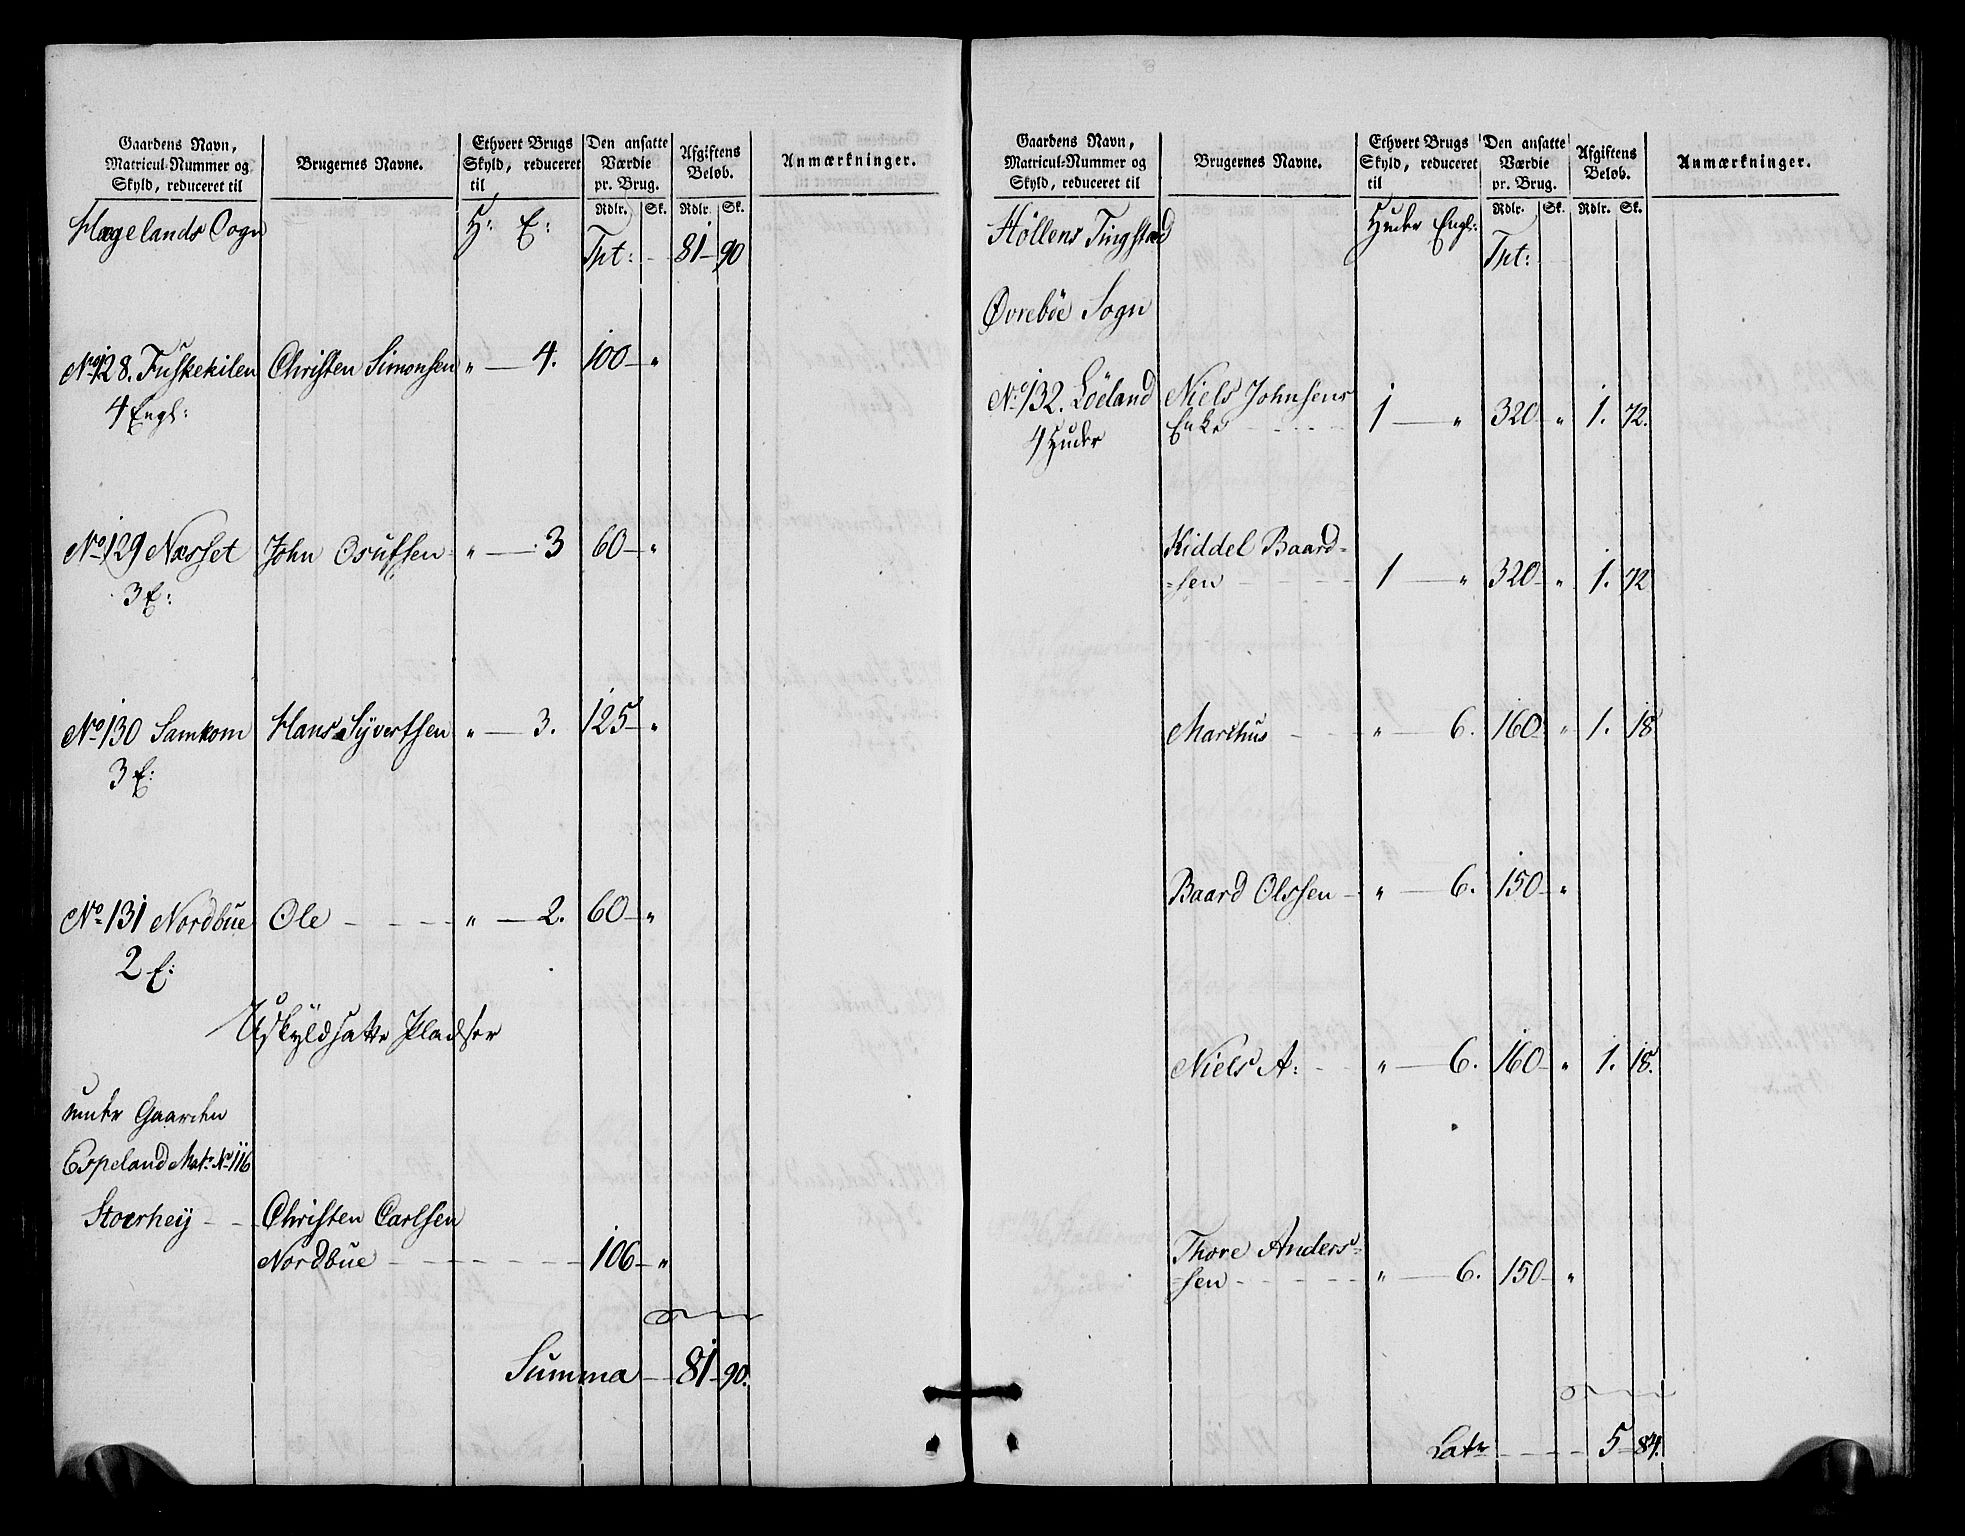 Gaardens Navn,
Matricul-Nummer og
Skyld, reduceret til
Brugernes Navne.
Ethvert Brugs
Skyld, reduceret
til
Den ansatte
Værdie
pr. Brug.
Afgiftens
Beløb.
Anmærkninger.
Rdlr. Sk. Rdlr. Sk.
Hægelands Sogn H: E: Tpt: 81 90
No 128. Fuskekilen Christen Simonsen " 4. 100 "
4 Engl:
No 129 Næsset John Osufsen " 3 60 "
3 E:
No 130 Samkom Hans Syvertsen " 3. 125 "
3 E:
No 131 Nordbue Ole " 2. 60 "
2 E:
Uskyldsatte Pladser
under Gaarden
Espeland Mat: No 116
Stoerheij Christen Carlsen
Nordbue 106 "
Summa 81 90.
Gaardens Navn,
Matricul-Nummer og
Skyld, reduceret til
Brugernes Navne.
Ethvert Brugs
Skyld, reduceret
til
Den ansatte
Værdie
pr. Brug.
Afgiftens
Beløb.
Anmærkninger.
Rdlr. Sk. Rdlr. Sk.
Höllens Tingstæd Huder Engl: Tpt:
Øvreböe Sogn
No 132. Löeland Niels Johnsens
4 Huder Enke 1 " 320 " 1. 72.
Kiddel Baard=
=sen 1 " 320 " 1. 72
Marchus " 6. 160 " 1. 18
Baard Olssen " 6. 150 "
Niels A: " 6. 160 " 1. 18.
Thore Anders=
=sen " 6. 150 "
Latr 5 84.